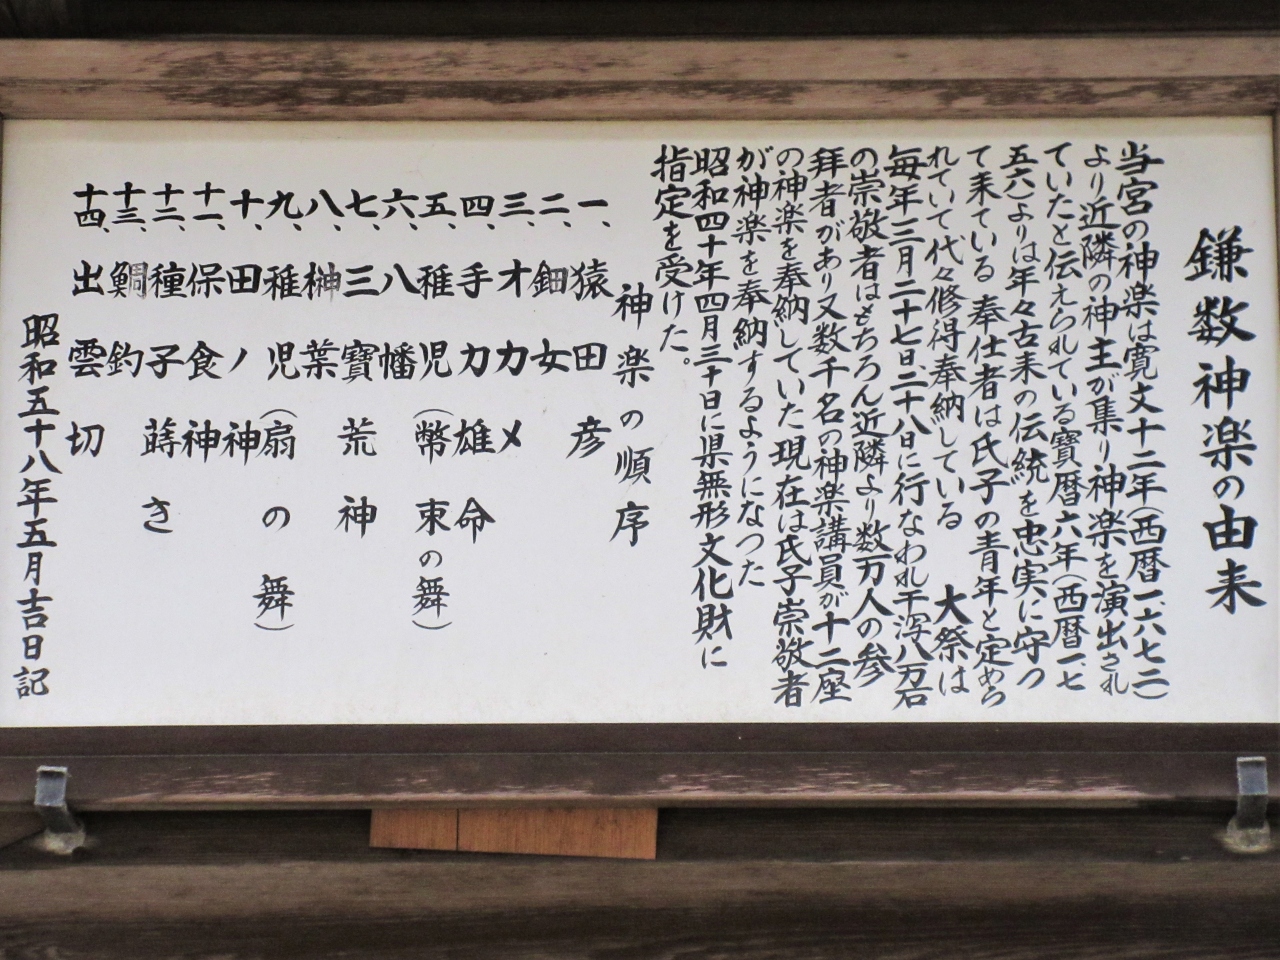 鎌数神楽の由来
当宮の神楽は寛文十二年(西暦一、六七二)
より近隣の神主が集り神楽を演出され
ていたと伝えられている寳暦六年(西暦一、七
五六)よりは年々古来の伝統を忠実に守つ
て来ている 奉仕者は氏子の青年と定めら
れていて代々修得奉納している 大祭は
毎年三月二十七日、二十八日に行なわれ干潟八万石
の崇敬者はもちろん近隣より数万人の参
拜者があり又数千名の神楽講員が十二座
の神楽を奉納していた現在は氏子崇敬者
が神楽を奉納するようになつた
昭和四十年四月三十日に県無形文化財に
指定を受けた。
神楽の順序
一、猿田彦
二、鈿女
三、オカメ
四、手力雄命
五、稚児(幣束の舞)
六、八幡
七、三寳荒神
八、榊葉
九、稚児(扇の舞)
十、田ノ神
十一、保食神
十二、種子蒔き
十三、鯛釣
十四、出雲切
昭和五十八年五月吉日記